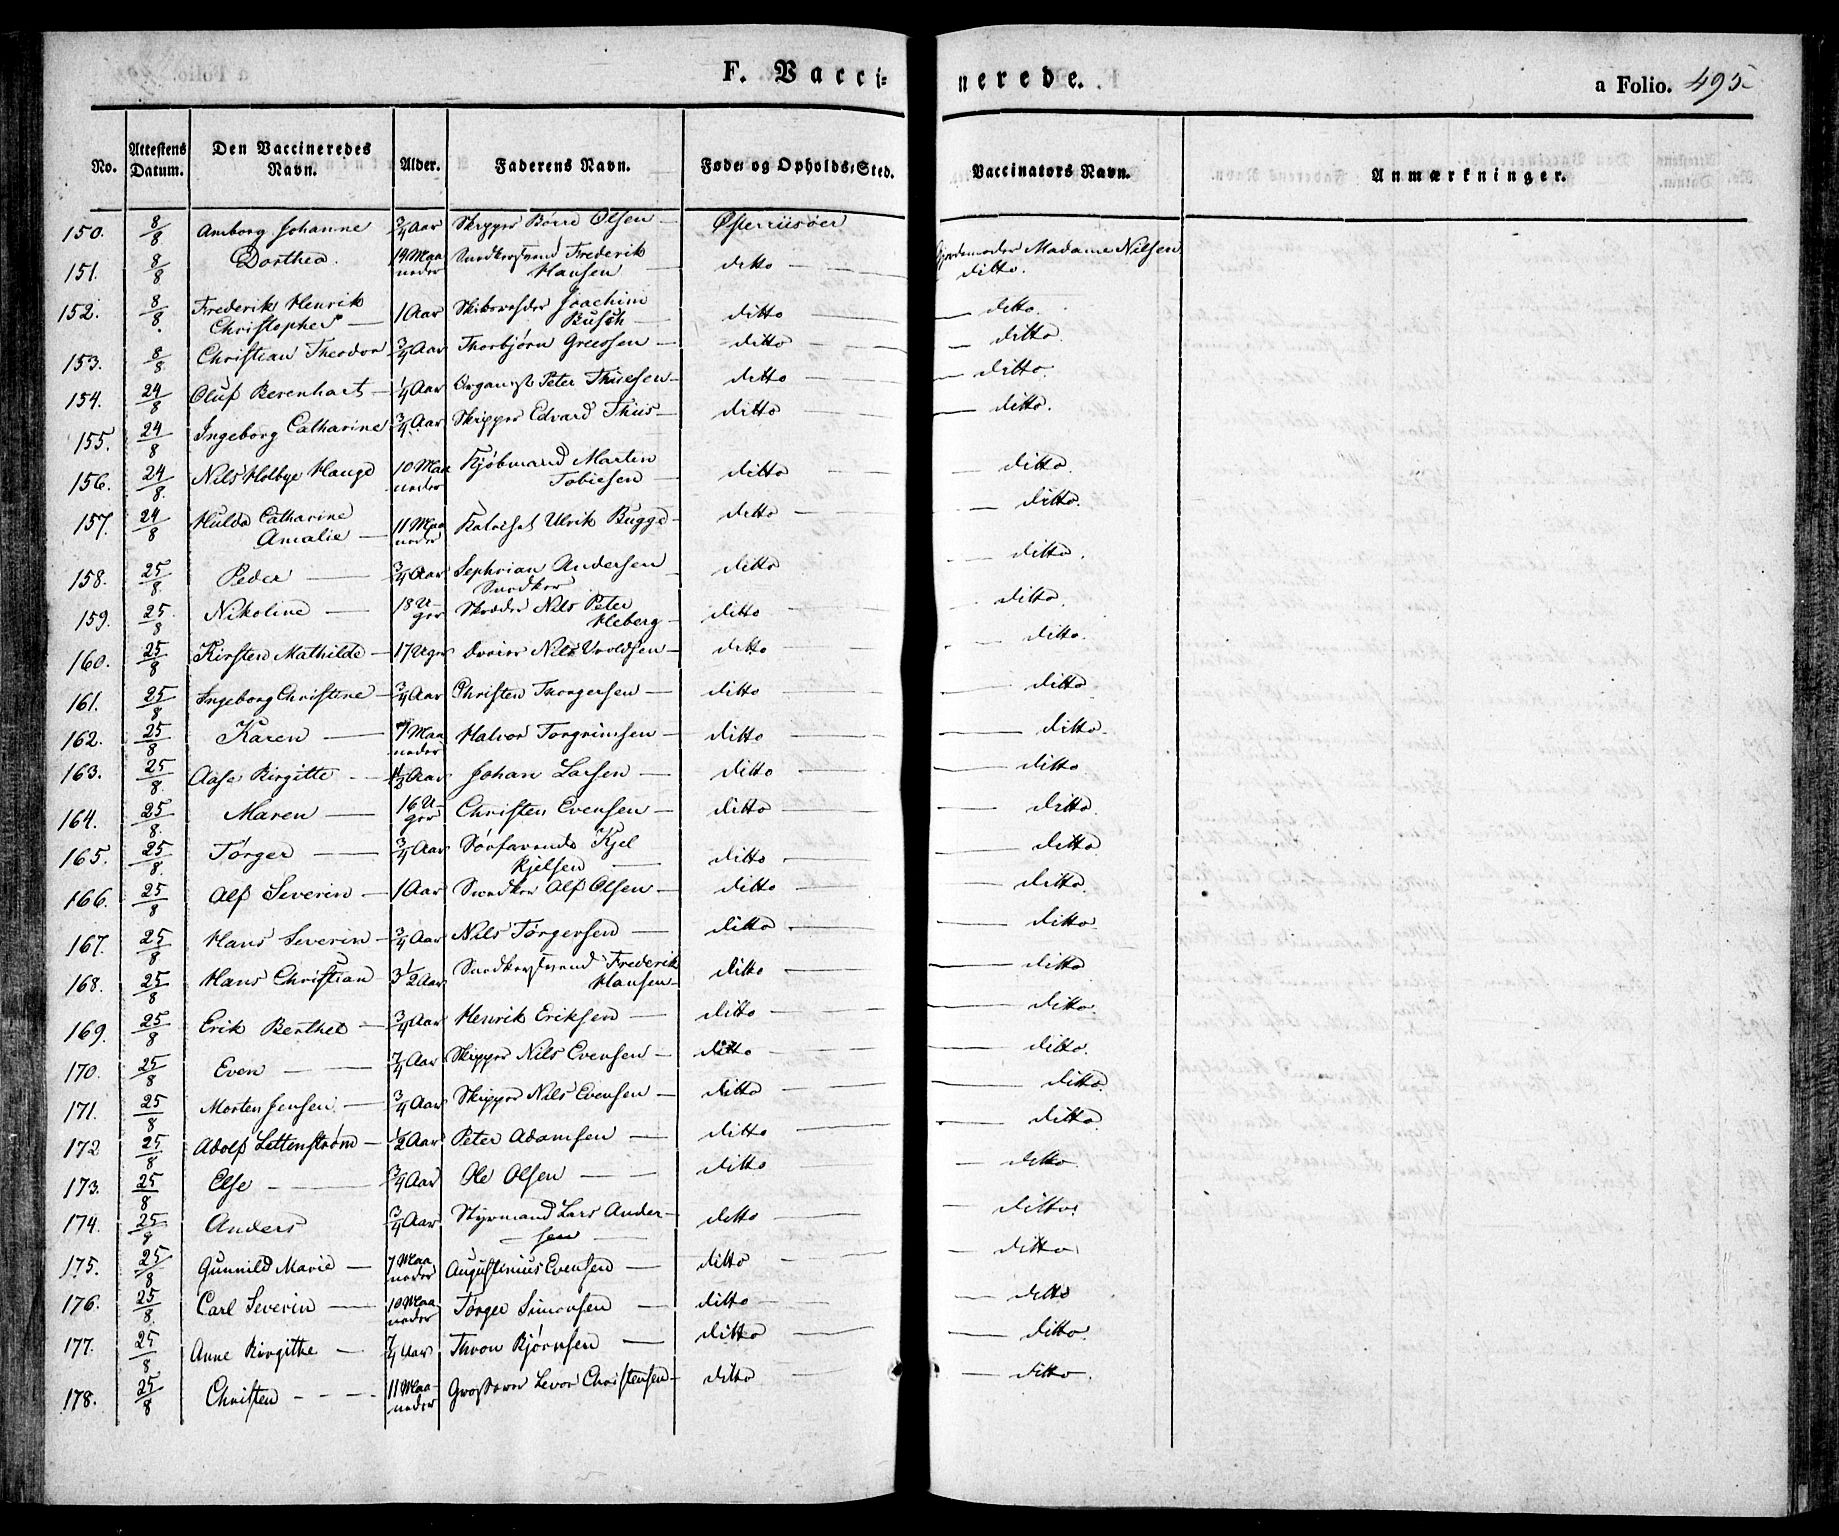 F. Vacci=
nerede.
a Folio. 495
No. Attestens Datum. Den Vaccineredes Navn. Alder. Faderens Navn. Føde- og Opholds-Sted. Vaccinators Navn. Anmærkninger.
150. 8/8 Amborg Johanne 3/4 Aar Skipper Børre Olsen — Østerriisøer Gjordemoder Madame Nilsen
151. 8/8 Dorthea. 14 Maaneder Snedkersvend Frederik Hansen — ditto — ditto.
152. 8/8 Frederik Henrik Christopher — 1 Aar Joachim Busch — ditto — ditto.
153. 8/8 Christian Theodor 3/4 Aar Thorbjørn Greesen — ditto — ditto.
154. 24/8 Oluf Berenhart — 1/4 Aar Organist Peter Thiesen — ditto — ditto.
155. 24/8 Ingeborg Catharine 3/4 Aar Skipper Edvard Thiis — ditto — ditto.
156. 24/8 Nils Holbye Hauge 10 Maaneder Kjøbmand Martin Tobiesen — ditto — ditto.
157. 24/8 Hulda Catharine Amalie — 11 Maaneder Ulrik Bugge — ditto — ditto.
158. 25/8 Peder — 3/4 Aar Sephrian Andersen Snedker ditto — ditto.
159. 25/8 Nikoline — 18 Uger Skræder Nils Peter Heberg — ditto — ditto.
160. 25/8 Kirsten Mathilde — 17 Uger Dreier Nils — ditto — ditto.
161. 25/8 Ingeborg Christine — 3/4 Aar Christen Thorgersen — ditto — ditto.
162. 25/8 Karen — 7 Maaneder Halvor Torgrimsen — ditto — ditto.
163. 25/8 Aase Birgitte — 1 1/2 Aar Johan Larsen — ditto — ditto
164. 25/8 Maren — 16 Uger Christen Evensen — ditto — ditto.
165. 25/8 Tørger — 3/4 Aar Søefarende Kjel Kjelsen — ditto — ditto.
166. 25/8 Alf Severin — 1 Aar Snedker Alf Olsen — ditto — ditto.
167. 25/8 Hans Severin — 3/4 Aar Nils Tørgersen — ditto — ditto
168. 25/8 Hans Christian 3 1/2 Aar Snedkersvend Frederik Hansen — ditto — ditto
169. 25/8 Erik Berthel — 3/4 Aar Henrik Eriksen — ditto — ditto.
170. 25/8 Even — 7/4 Aar Skipper Nils Evensen — ditto — ditto.
171. 25/8 Morten Jensen — 3/4 Aar Skipper Nils Evensen — ditto — ditto.
172 25/8 Adolf Lettenstrøm — 1/2 Aar Peter Adamsen — ditto — ditto.
173. 25/8 Else — 3/4 Aar Ole Olsen — ditto — ditto.
174. 25/8 Anders 3/4 Aar Styrmand Lars Andersen — ditto — ditto.
175. 25/8 Gunnild Marie — 7 Maaneder Augustinius Evensen — ditto — ditto
176. 25/8 Carl Severin — 10 Maaneder Tørger Simonsen — ditto — ditto
177. 25/8 Anne Birgithe — 7/4 Aar Thron Bjørnsen — ditto — ditto.
178. 25/8 Christen — 11 Maaneder Levor Christensen — ditto — ditto.